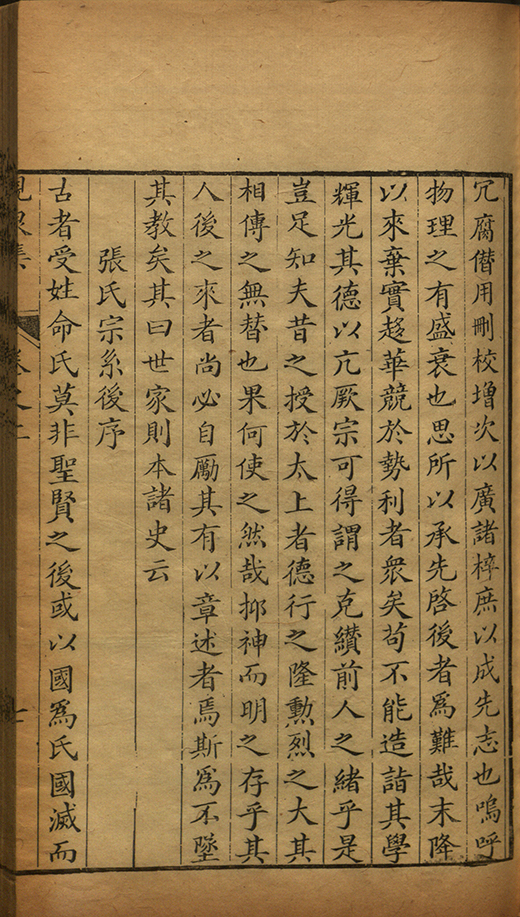 冗腐僭用刪校增次以廣諸梓庶以成先志也嗚呼
物理之有盛衰也思所以承先啓後者爲難哉末降
以來棄實趍華競於勢利者衆矣苟不能造詣其學
輝光其德以亢厥宗可得謂之克纘前人之緒乎是
豈足知夫昔之授於太上者德行之隆勳烈之大其
相傳之無替也果何使之然哉抑神而明之存乎其
人後之來者尚必自勵其有以章述者焉斯爲不墜
其教矣其曰世家則本諸史云
張氏宗系後序
古者受姓命氏莫非聖賢之後或以國爲氏國滅而